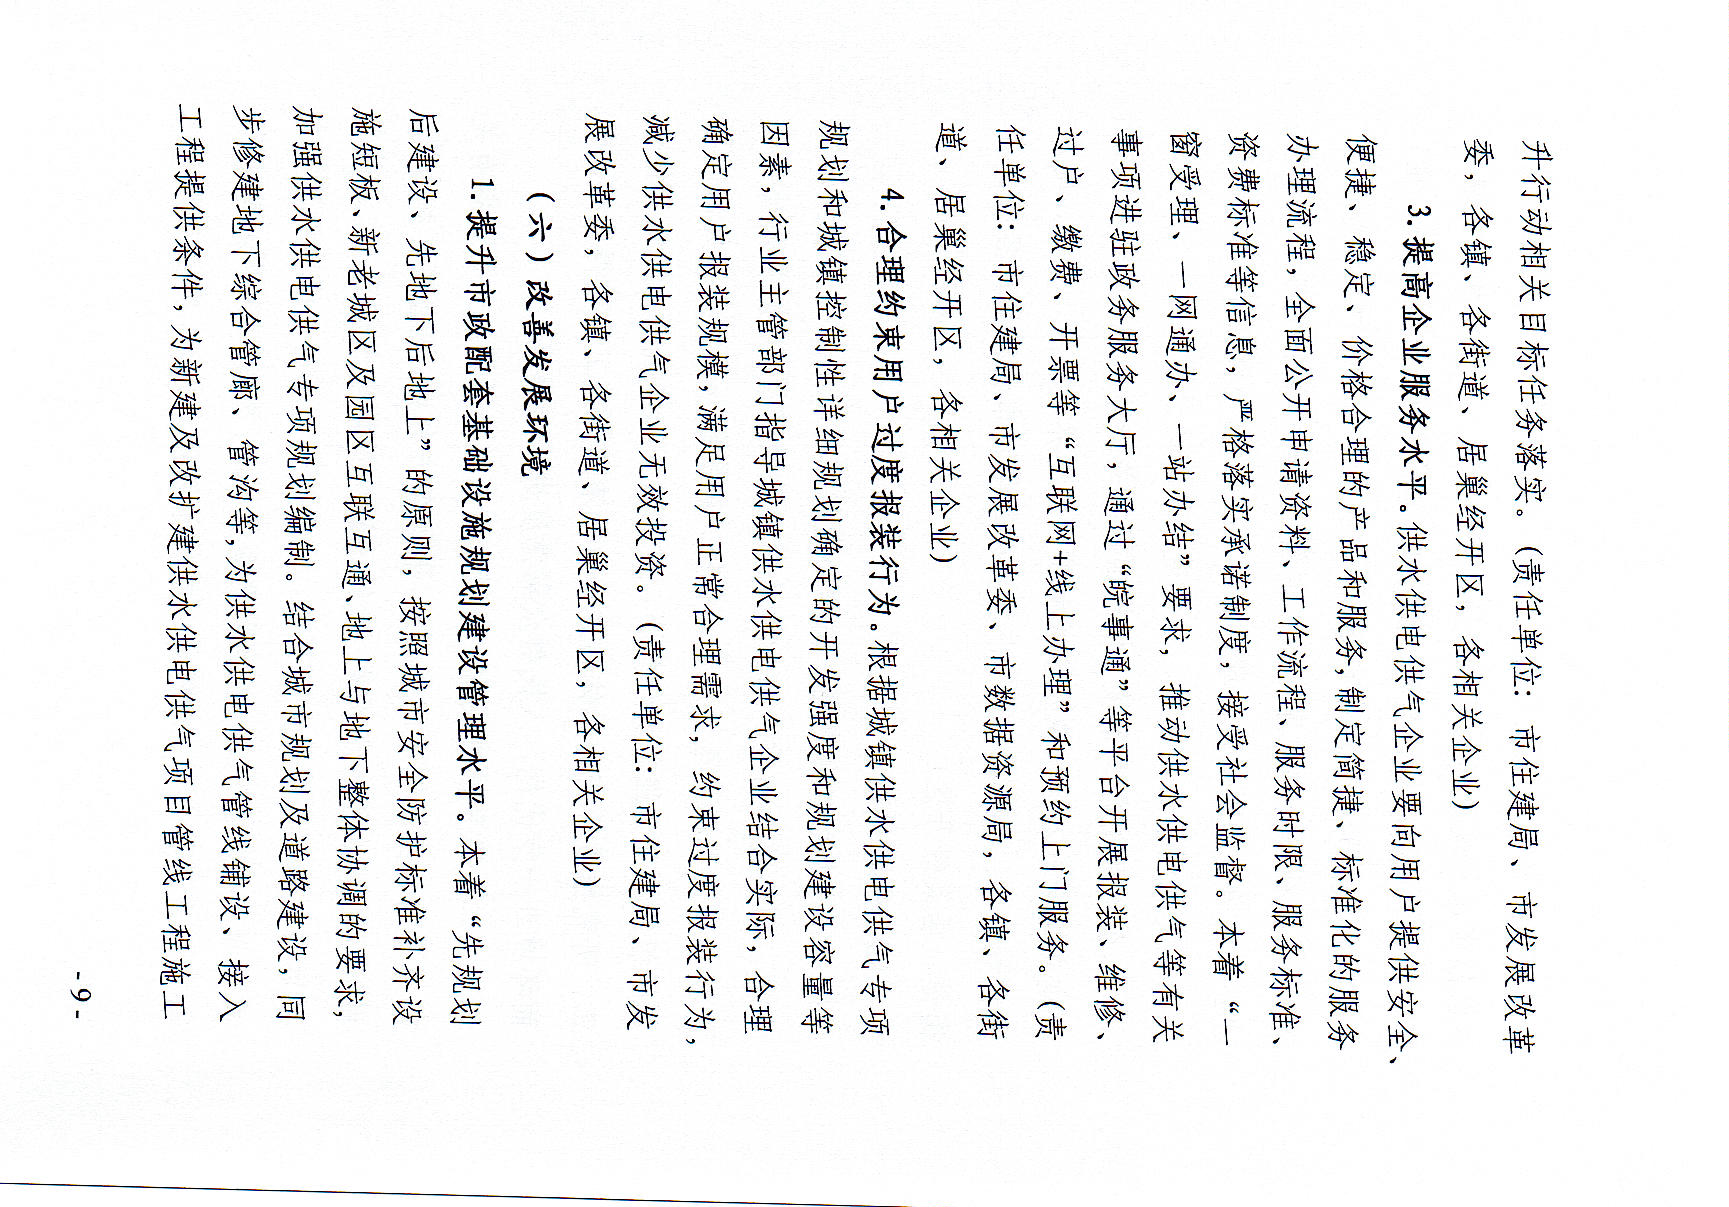 升行动相关目标任务落实。（责任单位：市住建局、市发展改革
委，各镇、各街道、居巢经开区，各相关企业）
3. 提高企业服务水平。供水供电供气企业要向用户提供安全、
便捷、稳定、价格合理的产品和服务，制定简捷、标准化的服务
办理流程，全面公开申请资料、工作流程、服务时限、服务标准、
资费标准等信息，严格落实承诺制度，接受社会监督。本着“一
窗受理、一网通办、一站办结”要求，推动供水供电供气等有关
事项进驻政务服务大厅，通过“皖事通”等平台开展报装、维修、
过户、缴费、开票等“互联网+线上办理”和预约上门服务。（责
任单位：市住建局、市发展改革委、市数据资源局，各镇、各街
道、居巢经开区，各相关企业）
4. 合理约束用户过度报装行为。根据城镇供水供电供气专项
规划和城镇控制性详细规划确定的开发强度和规划建设容量等
因素，行业主管部门指导城镇供水供电供气企业结合实际，合理
确定用户报装规模，满足用户正常合理需求，约束过度报装行为，
减少供水供电供气企业无效投资。（责任单位：市住建局、市发
展改革委，各镇、各街道、居巢经开区，各相关企业）
（六）改善发展环境
1. 提升市政配套基础设施规划建设管理水平。本着“先规划
后建设、先地下后地上”的原则，按照城市安全防护标准补齐设
施短板、新老城区及园区互联互通、地上与地下整体协调的要求，
加强供水供电供气专项规划编制。结合城市规划及道路建设，同
步修建地下综合管廊、管沟等，为供水供电供气管线铺设、接入
工程提供条件，为新建及改扩建供水供电供气项目管线工程施工
- 9 -